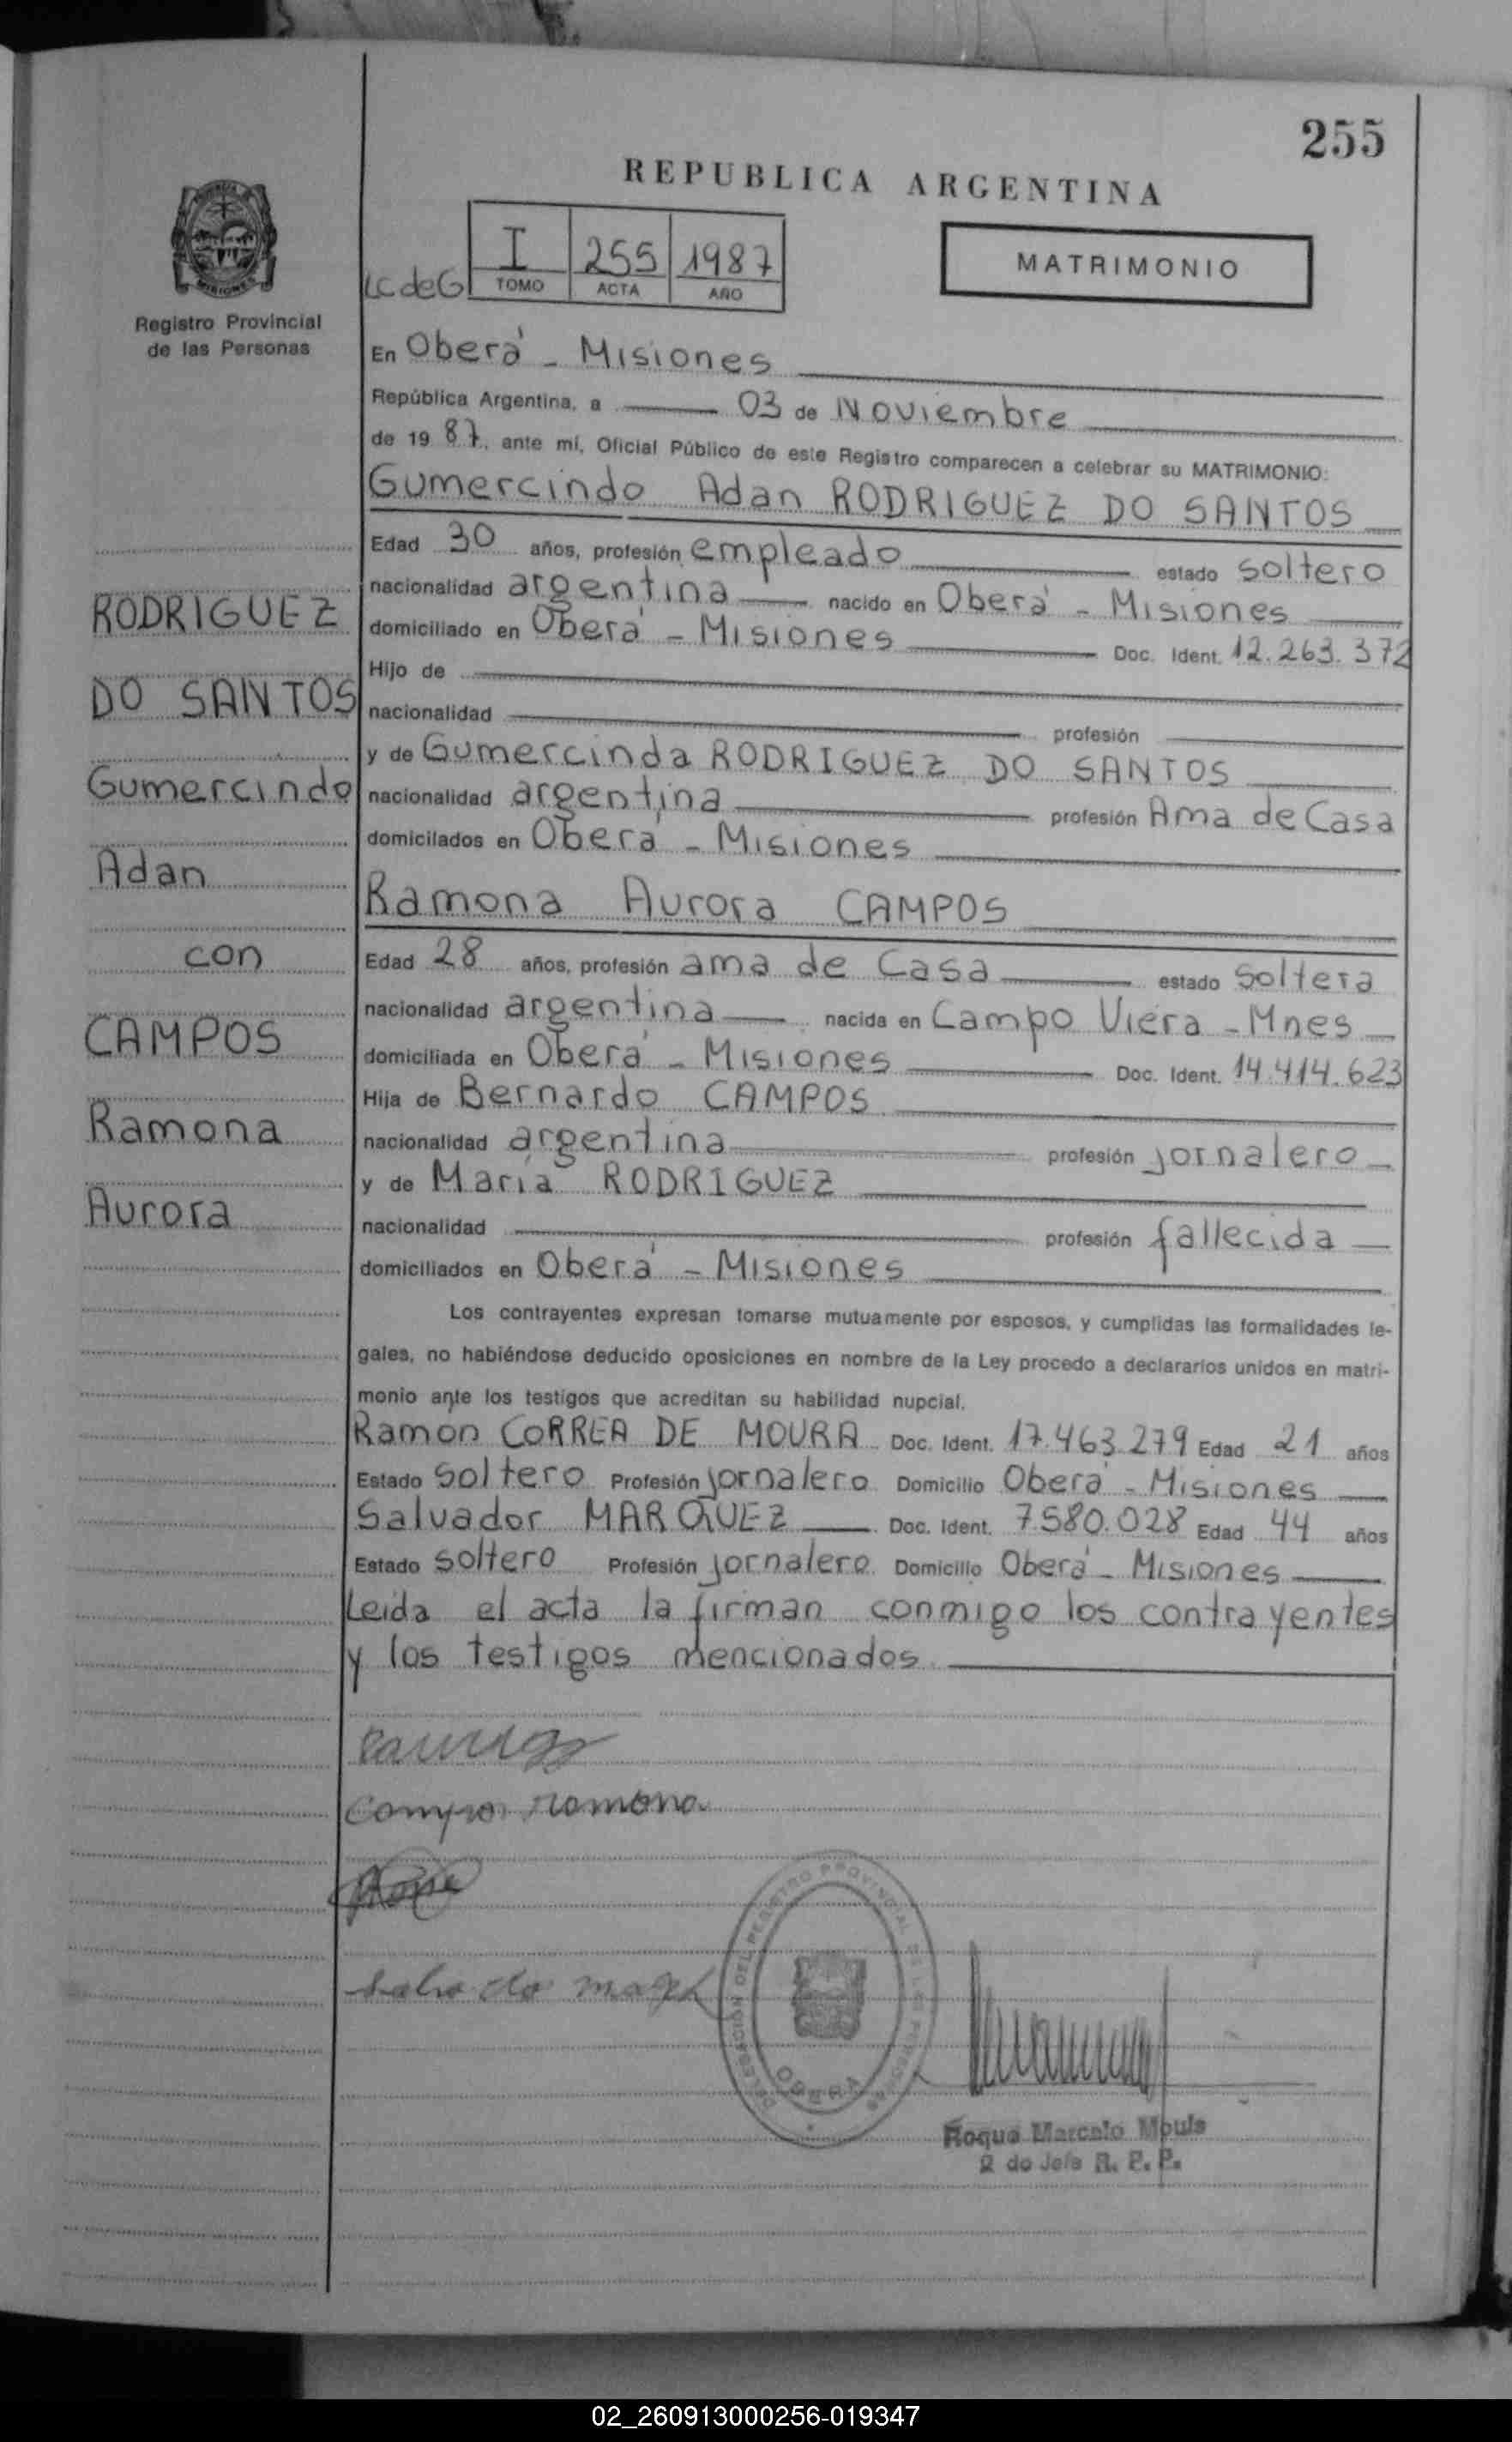 255
REPUBLICA ARGENTINA
I 255 1987
TOMO ACTA AÑO
LC de G
MATRIMONIO
Registro Provincial
de las Personas
En Oberá - Misiones
República Argentina, a 03 de Noviembre
de 19 87, ante mí, Oficial Público de este Registro comparecen a celebrar su MATRIMONIO:
Gumercindo Adan RODRIGUEZ DO SANTOS
Edad 30 años, profesión empleado estado soltero
nacionalidad argentina nacido en Oberá - Misiones
domiciliado en Oberá - Misiones Doc. Ident. 12.263.372
Hijo de
nacionalidad profesión
y de Gumercinda RODRIGUEZ DO SANTOS
nacionalidad argentina profesión Ama de Casa
domicilados en Oberá - Misiones
Ramona Aurora CAMPOS
Edad 28 años, profesión ama de Casa estado soltera
nacionalidad argentina nacida en Campo Viera - Mnes
domiciliada en Oberá - Misiones Doc. Ident. 14.414.623
Hija de Bernardo CAMPOS
nacionalidad argentina profesión jornalero
y de María RODRIGUEZ
nacionalidad profesión fallecida
domiciliados en Oberá - Misiones
Los contrayentes expresan tomarse mutuamente por esposos, y cumplidas las formalidades le-
gales, no habiéndose deducido oposiciones en nombre de la Ley procedo a declararlos unidos en matri-
monio ante los testigos que acreditan su habilidad nupcial.
Ramón CORREA DE MOURA Doc. Ident. 17.463.279 Edad 21 años
Estado Soltero Profesión jornalero Domicilio Oberá - Misiones
Salvador MARQUEZ Doc. Ident. 7.580.028 Edad 44 años
Estado soltero Profesión jornalero Domicilio Oberá - Misiones
Leída el acta la firman conmigo los contrayentes
y los testigos mencionados.
RODRIGUEZ
DO SANTOS
Gumercindo
Adan
con
CAMPOS
Ramona
Aurora
Campos Ramona
DELEGACION DEL REGISTRO PROVINCIAL DE LAS PERSONAS
OBERA
Roque Marcelo
2 do Jefe R. P. P.
02_260913000256-019347